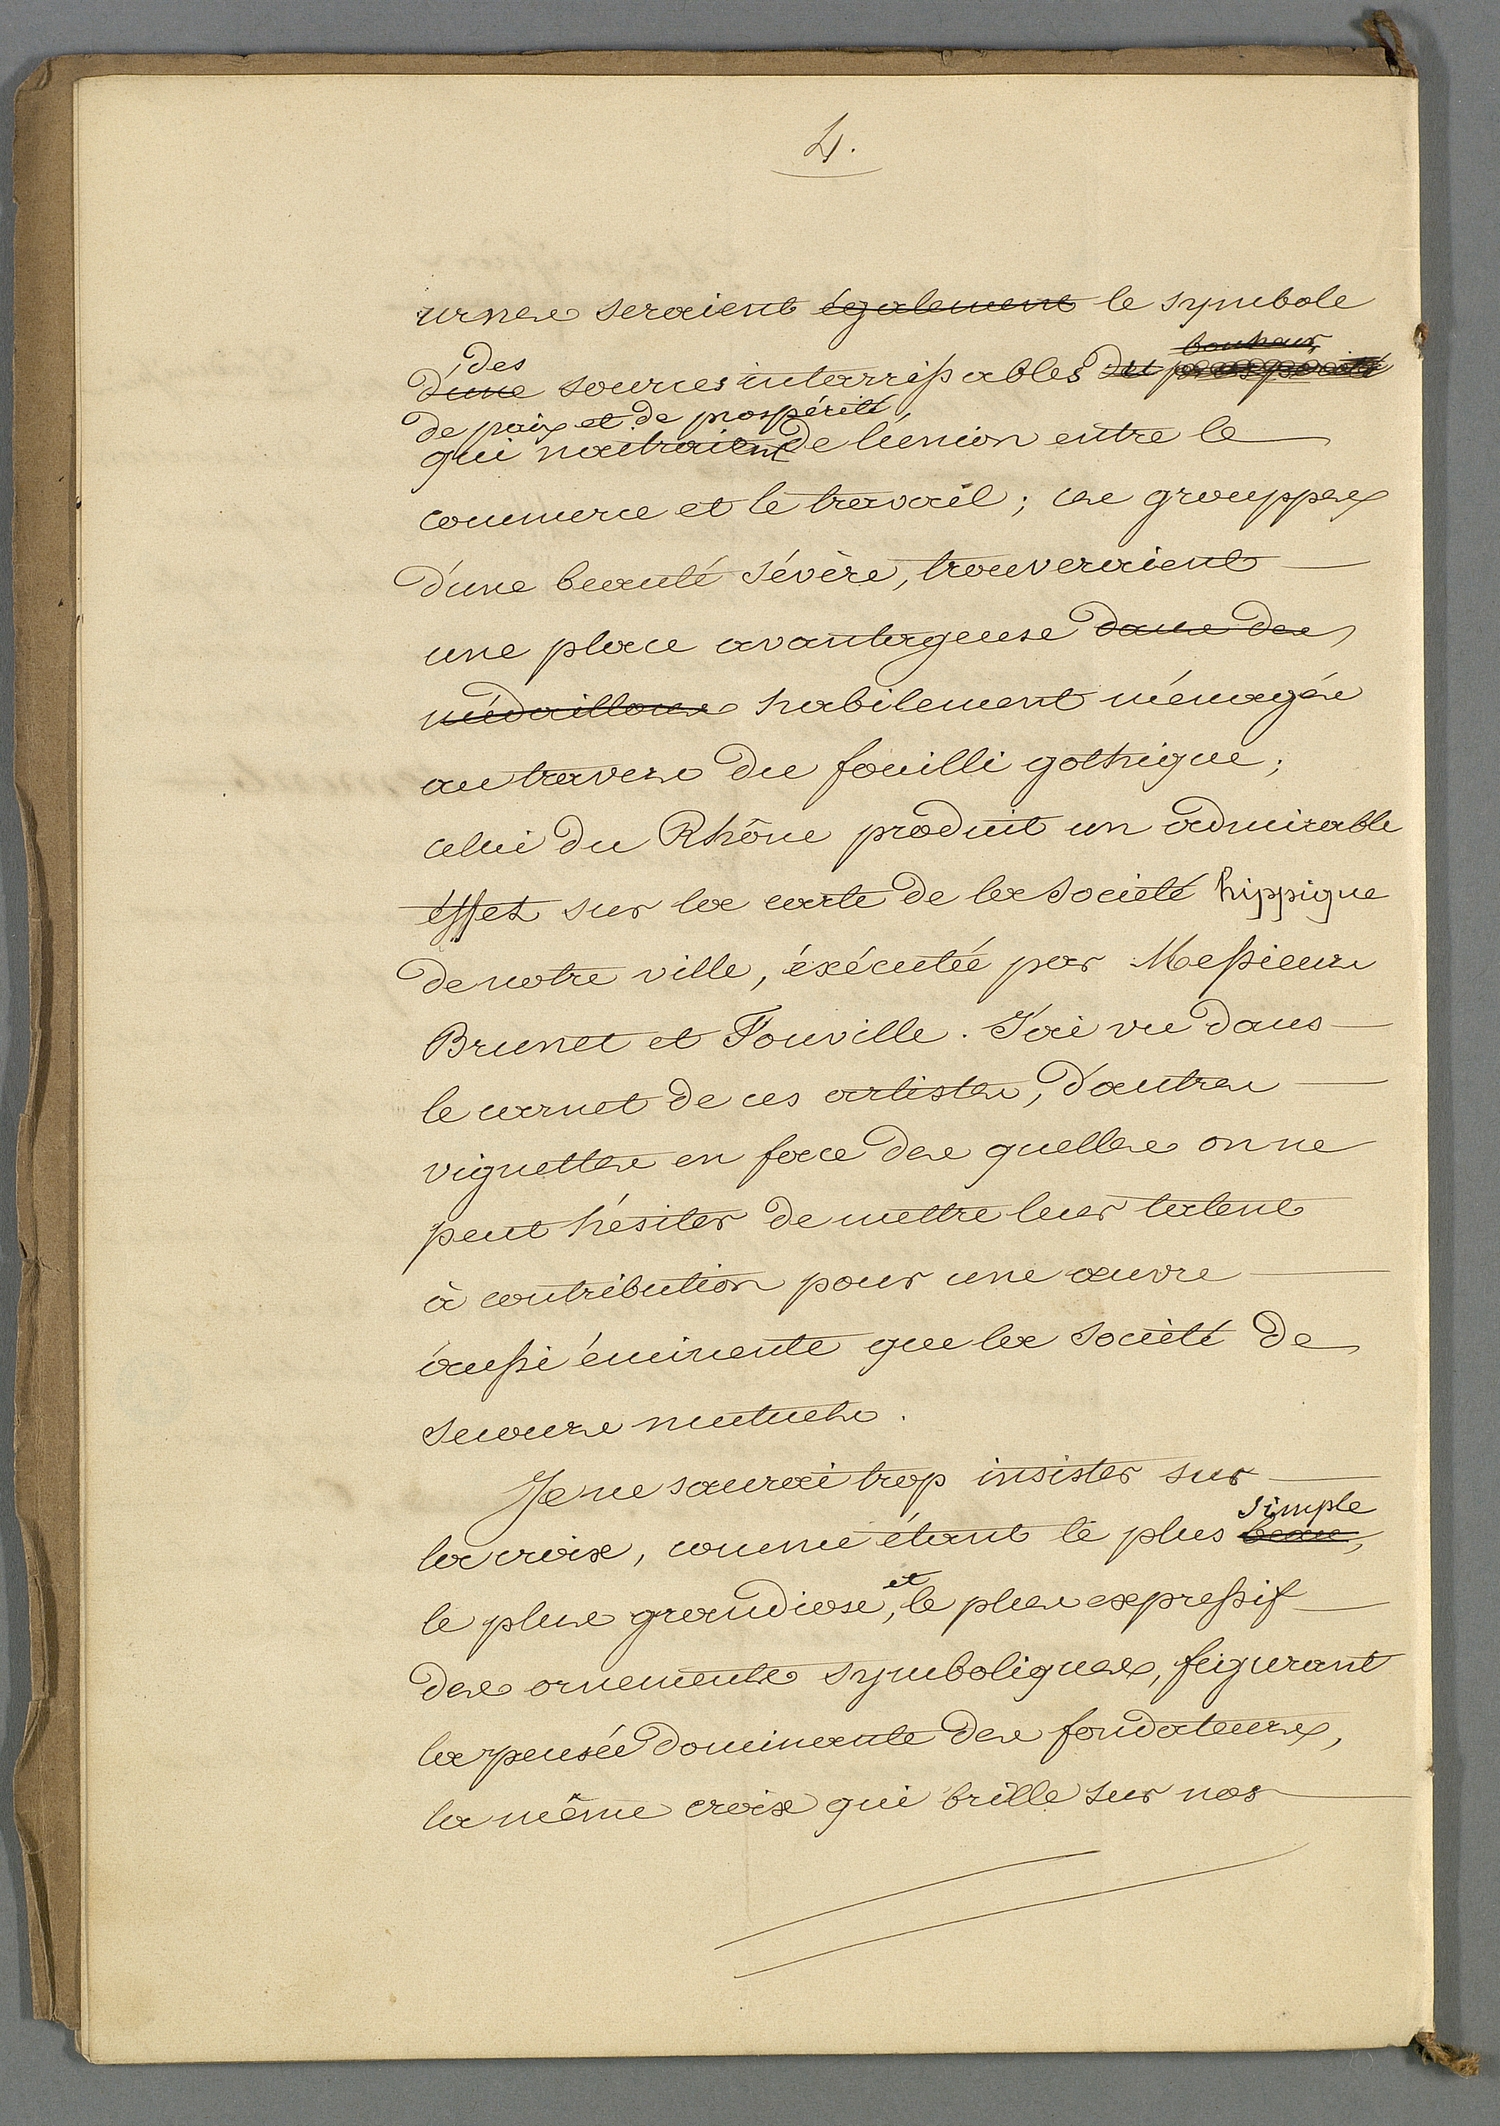 4.
urnes seraient également le symbole
des
d'une sources intarrissables du prospérité
bonheur,
de paix et de prospérité,
qui naitraient de l'union entre le
commerce et le travail ; ces grouppes
d'une beauté sévère, trouveraient
une place avantageuse dans des
médaillons habilement ménagés
au travers du fouilli gothique ;
celui du Rhône produit un admirable
éffet sur la carte de la société hippique
de notre ville, éxécutée par Messieurs
Brunet et Fouville. J'ai vu dans
le carnet de ces artistes, d'autres
vignettes en face des quelles on ne
peut hésiter de mettre leur talent
à contribution pour une œuvre
aussi éminente que la société de
secours mutuels.
Je ne saurai trop insister sur
simple
la croix, comme étant le plus beau,
le plus grandiose, et le plus expressif
des ornements symboliques, figurant
la pensée dominante des fondateurs,
la même croix qui brille sur nos